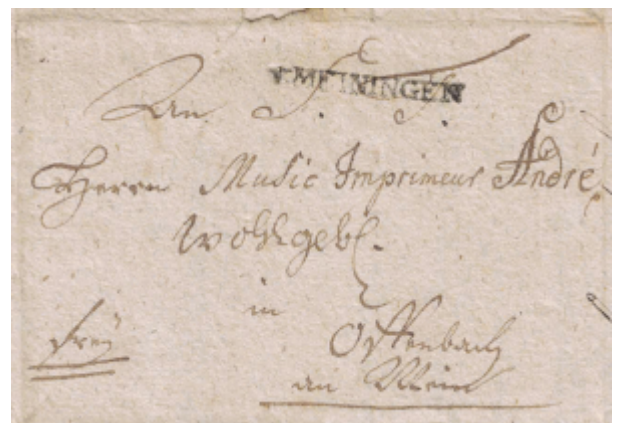 V. MEININGEN
An S. T.
Herrn Music Imprimeur André
wohlgeb.
in
Offenbach
an Mein
frey